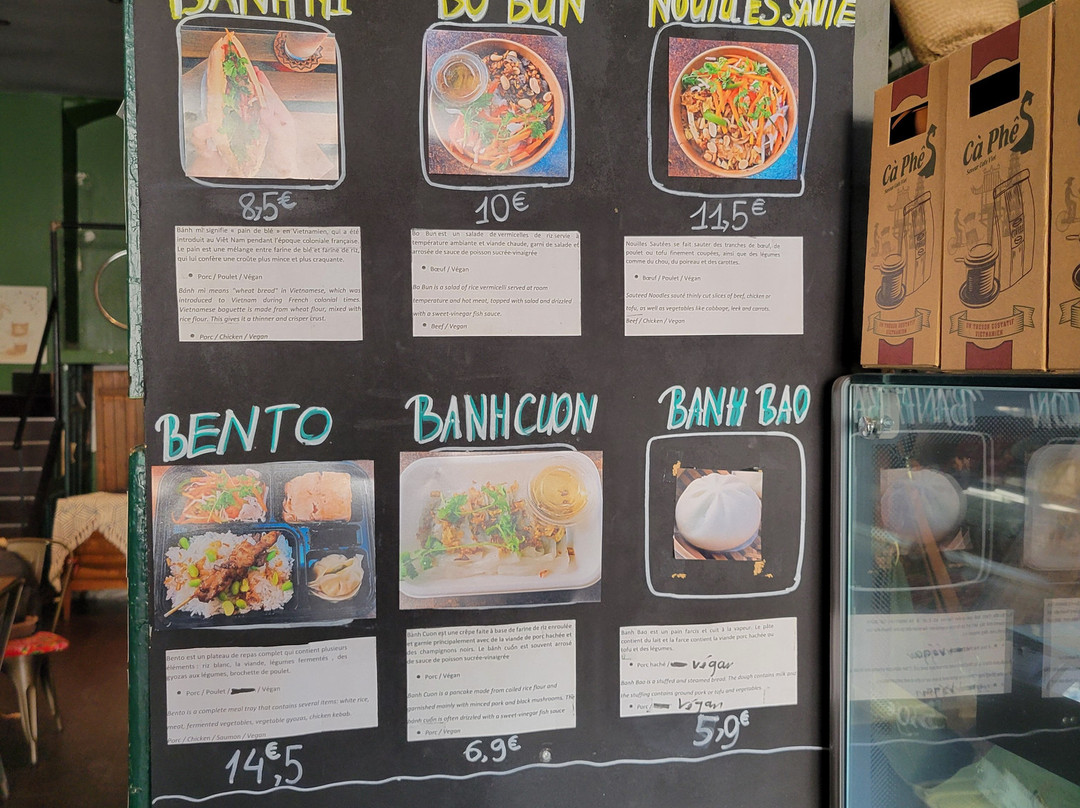 BANH MI
BO BUN
NOUILLES SAUTE
8,5€
10€
11,5€
Bánh mì signifie « pain de blé » en Vietnamien, qui a été
introduit au Việt Nam pendant l'époque coloniale française.
Le pain est une mélange entre farine de blé et farine de riz,
qui lui confère une croûte plus mince et plus craquante.
• Porc / Poulet / Végan
Bánh mì means "wheat bread" in Vietnamese, which was
introduced to Vietnam during French colonial times.
Vietnamese baguette is made from wheat flour, mixed with
rice flour. This gives it a thinner and crisper crust.
• Porc / Chicken / Vegan
Bo Bun est un salade de vermicelles de riz servie à
température ambiante et viande chaude, garni de salade et
arrosée de sauce de poisson sucrée-vinaigrée
• Bœuf / Végan
Bo Bun is a salad of rice vermicelli served at room
temperature and hot meat, topped with salad and drizzled
with a sweet-vinegar fish sauce.
• Beef / Vegan
Nouilles Sautées se fait sauter des tranches de bœuf, de
poulet ou tofu finement coupées, ainsi que des légumes
comme du chou, du poireau et des carottes.
• Bœuf / Poulet / Végan
Sauteed Noodles sauté thinly cut slices of beef, chicken or
tofu, as well as vegetables like cabbage, leek and carrots.
Beef / Chicken / Vegan
BENTO
BANH CUON
BANH BAO
Bento est un plateau de repas complet qui contient plusieurs
éléments : riz blanc, la viande, légumes fermentés , des
gyozas aux légumes, brochette de poulet.
• Porc / Poulet / / Végan
Bento is a complete meal tray that contains several items: white rice,
meat, fermented vegetables, vegetable gyozas, chicken kebab.
Porc / Chicken / Saumon / Vegan
14€,5
Bánh Cuon est une crêpe faite à base de farine de riz enroulée
et garnie principalement avec de la viande de porc hachée et
des champignons noirs. Le bánh cuốn est souvent arrosé
de sauce de poisson sucrée-vinaigrée
• Porc / Végan
Bánh Cuon is a pancake made from coiled rice flour and
garnished mainly with minced pork and black mushrooms. The
bánh cuốn is often drizzled with a sweet vinegar fish sauce
• Porc / Vegan
6,9€
Banh Bao est un pain farcis et cuit à la vapeur. Le pâte
contient du lait et la farce contient la viande porc hachée ou
tofu et des légumes.
• Porc haché / végan
Banh Bao is a stuffed and steamed bread. The dough contains milk and
the stuffing contains ground pork or tofu and vegetables.
• Porc / Végan
5,9€
Cà Phê
Cà Phê
UN TRÉSOR GUSTATIF
VIETNAMIEN